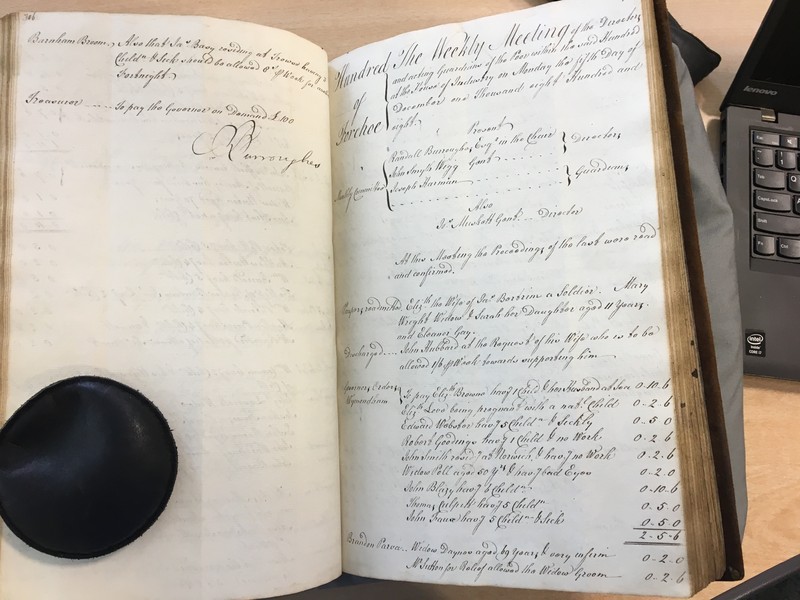 Baraham Broom
Also that Jas. Busy residing at Trowse having 2
Childn. & Sick should be allowed pr. Week for another
Fortnight.
Treasurer
To pay the Governor on Demand £100
R Burroughes
Hundred
of
Forehoe
The Weekly Meeting of the Directors
and acting Guardians of the Poor within the said Hundred
at the House of Industry on Monday the fifth Day of
December one Thousand eight Hundred and
eight.
Present
Randall Burroughes Esqr. in the Chair
John Smyth Wigg Gent.
Directors
Weekly Committee
Joseph Harman
Guardians
Also
Jas. Muskett Gent. Director
At this Meeting the Proceedings of the last were read
and confirmed.
Paupers readmitted
Elizth. the Wife of Jas. Bertrim a Soldier. Mary
Wright Widow & Sarah her Daughter aged 11 Years.
and Eleanor Gay.
Discharged
John Hubbard at the Request of his Wife who is to be
allowed 1/6 pr. Week towards supporting him
Quarines Orders
Wymondham
To pay Elizth. Browne havg. 1 Child & her Husband at Sea 0-10-6
Elizth. Love being pregnant with a natl. Child 0-2-6
Edward Webster havg. 5 Childn. & Sickly 0-5-0
Robert Goodings havg. 1 Child & no Work 0-2-6
John Smith residg. at Norwich, & havg. no Work 0-2-6
Widow Poll aged 50 Yrs. & havg. bad Eyes 0-2-0
John Blazy havg. 6 Childn. 0-10-6
Thomas Culpett havg. 5 Childn. 0-5-0
John Frause havg. 5 Childn. & Sick 0-5-0
2-5-6
Brandon Parva
Widow Daynes aged 69 Years & very infirm 0-2-0
Mr. Sutton for Relief allowed the Widow Groom 0-2-6
lenovo
intel
inside
CORE i7
Esc
Tab
CapsLock
Shift
Fn
Ctrl